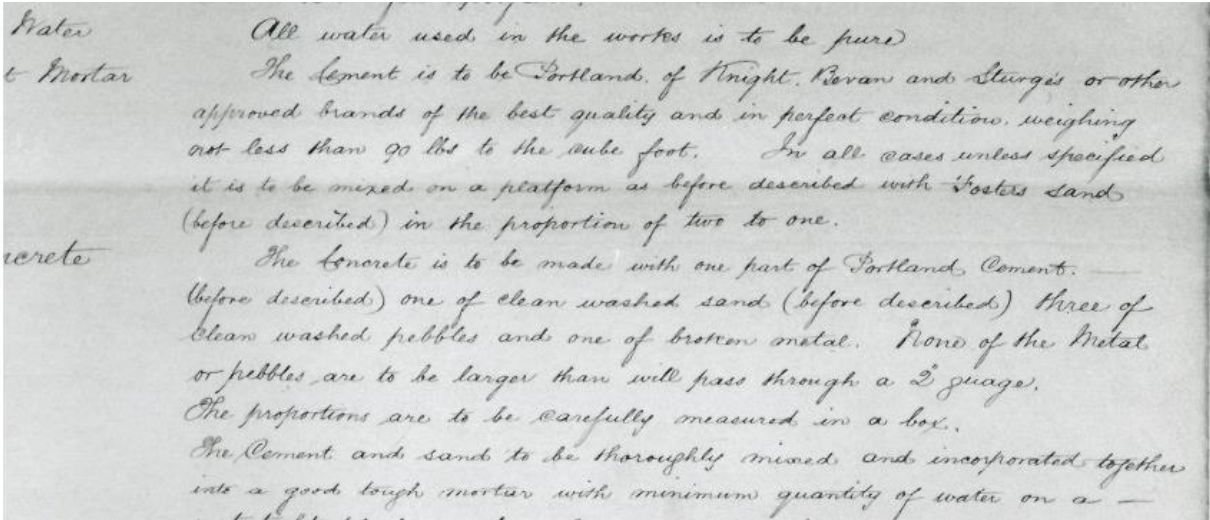 Water All water used in the works is to be pure
t Mortar The Cement is to be Portland. of Knight. Bevan and Sturges or other
approved brands of the best quality and in perfect condition. weighing
not less than 90 lbs to the cube foot. In all cases unless specified
it is to be mixed on a platform as before described with Fosters sand
(before described) in the proportion of two to one.
ncrete The Concrete is to be made with one part of Portland Cement. —
(before described) one of clean washed sand (before described) three of
clean washed pebbles and one of broken metal. None of the Metal
or pebbles are to be larger than will pass through a 2" guage.
The proportions are to be carefully measured in a box.
The Cement and sand to be thoroughly mixed and incorporated together
into a good tough mortar with minimum quantity of water on a —